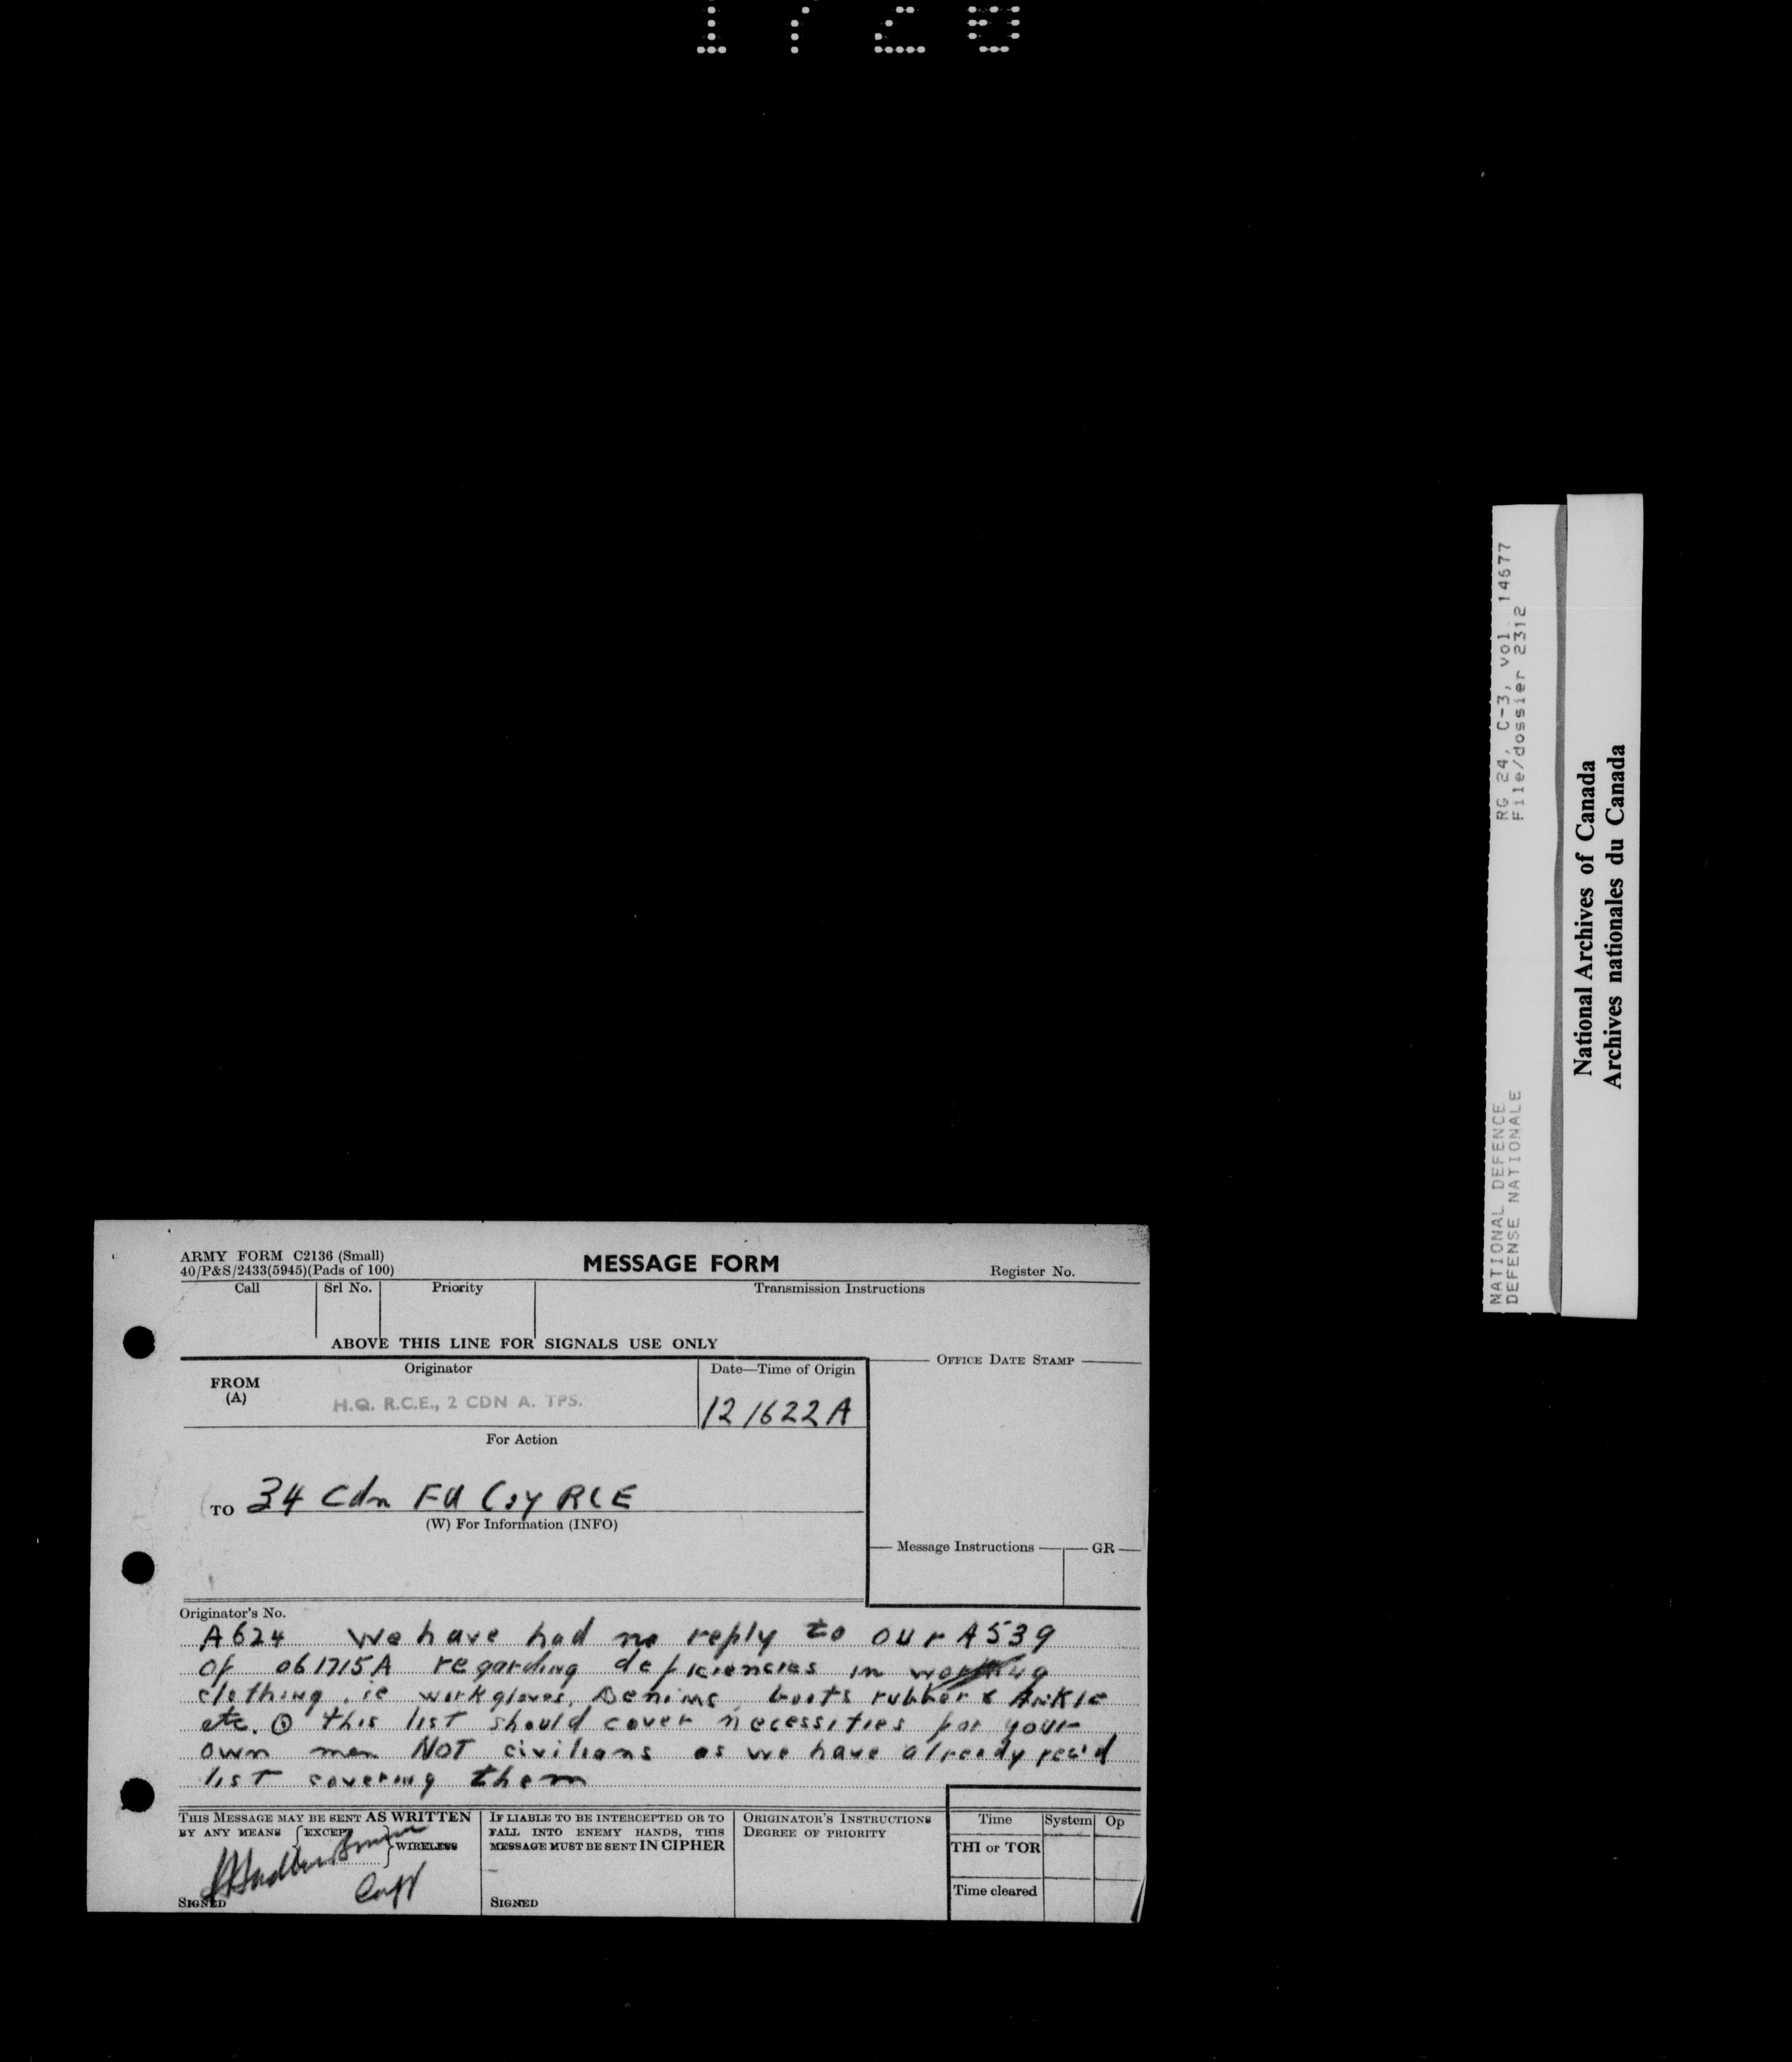 1728
ARMY FORM C2136 (Small)
40/P&S/2433(5945)(Pads of 100)
MESSAGE FORM
Register No.
Call
Srl No.
Priority
Transmission Instructions
ABOVE THIS LINE FOR SIGNALS USE ONLY
FROM
(A)
Originator
H.Q. R.C.E., 2 CDN A. TPS.
Date—Time of Origin
121622A
OFFICE DATE STAMP
For Action
TO 34 Cdn Fd Coy RCE
(W) For Information (INFO)
Message Instructions
GR
Originator's No.
A624 We have had no reply to our A539
of 061715A regarding deficiencies in working
clothing, ie work gloves, Denims, boots rubber & Ankle
etc. ⊙ this list should cover necessities for your
own men NOT civilians as we have already rec'd
list covering them
THIS MESSAGE MAY BE SENT AS WRITTEN
BY ANY MEANS {EXCEPT} WIRELESS
Capt
SIGNED
IF LIABLE TO BE INTERCEPTED OR TO
FALL INTO ENEMY HANDS, THIS
MESSAGE MUST BE SENT IN CIPHER
SIGNED
ORIGINATOR'S INSTRUCTIONS
DEGREE OF PRIORITY
Time
System
Op
THI or TOR
Time cleared
NATIONAL DEFENCE
DEFENSE NATIONALE
RG 24, C-3, vol. 14677
File/dossier 2312
National Archives of Canada
Archives nationales du Canada